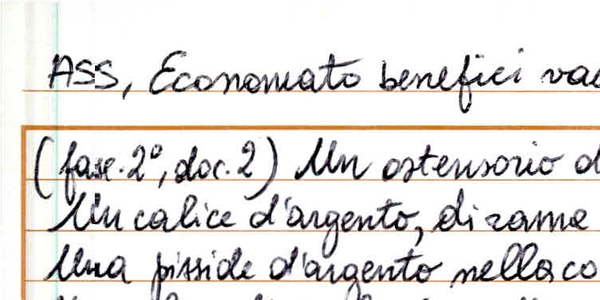 ASS, Economato benefici vac
(fasc. 2º, doc. 2) Un ostensorio d
Un calice d'argento, di rame
Una pisside d'argento nella co